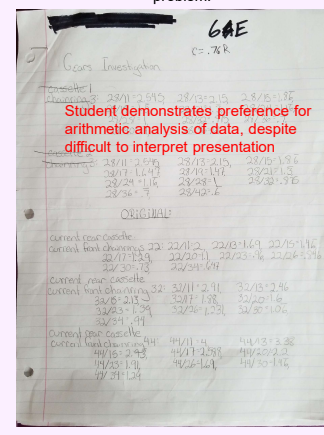 problem.
6AE
C= .76R
Gears Investigation
cassette 1
chainring 3: 28/11=2.545 28/13=2.15 28/15=1.86
Student demonstrates preference for
arithmetic analysis of data, despite
difficult to interpret presentation
28/11=2.545 28/13=2.15, 28/15=1.86
28/17=1.647 28/19=1.47 28/21=1.3
28/24=1.16 28/28=1 28/32=.875
28/36=.7 28/42=.6
ORIGINAL:
current rear cassette
current front chainring 22: 22/11=2, 22/13=1.69, 22/15=1.46
22/17=1.29 22/20=1.1 22/23=.96 22/26=.846
22/30=.73 22/34=.64
current rear cassette
current front chainring 32: 32/11=2.91 32/13=2.46
32/15=2.13 32/17=1.88 32/20=1.6
32/23=1.39 32/26=1.231, 32/30=1.06
32/34=.94
current rear cassette
current front chainring 44: 44/11=4 44/13=3.38
44/15=2.93 44/17=2.588 44/20=2.2
44/23=1.91 44/26=1.69, 44/30=1.46
44/34=1.29